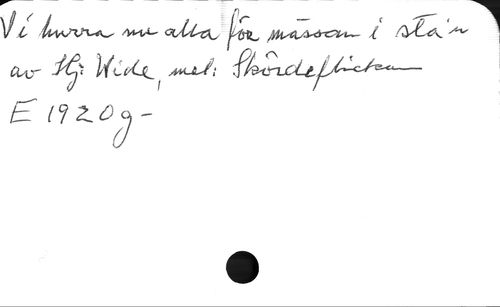 Vi hurra nu alla för mässan i sta'n
av Hj. Wide, mel: Skördeflickan
E 1920g-